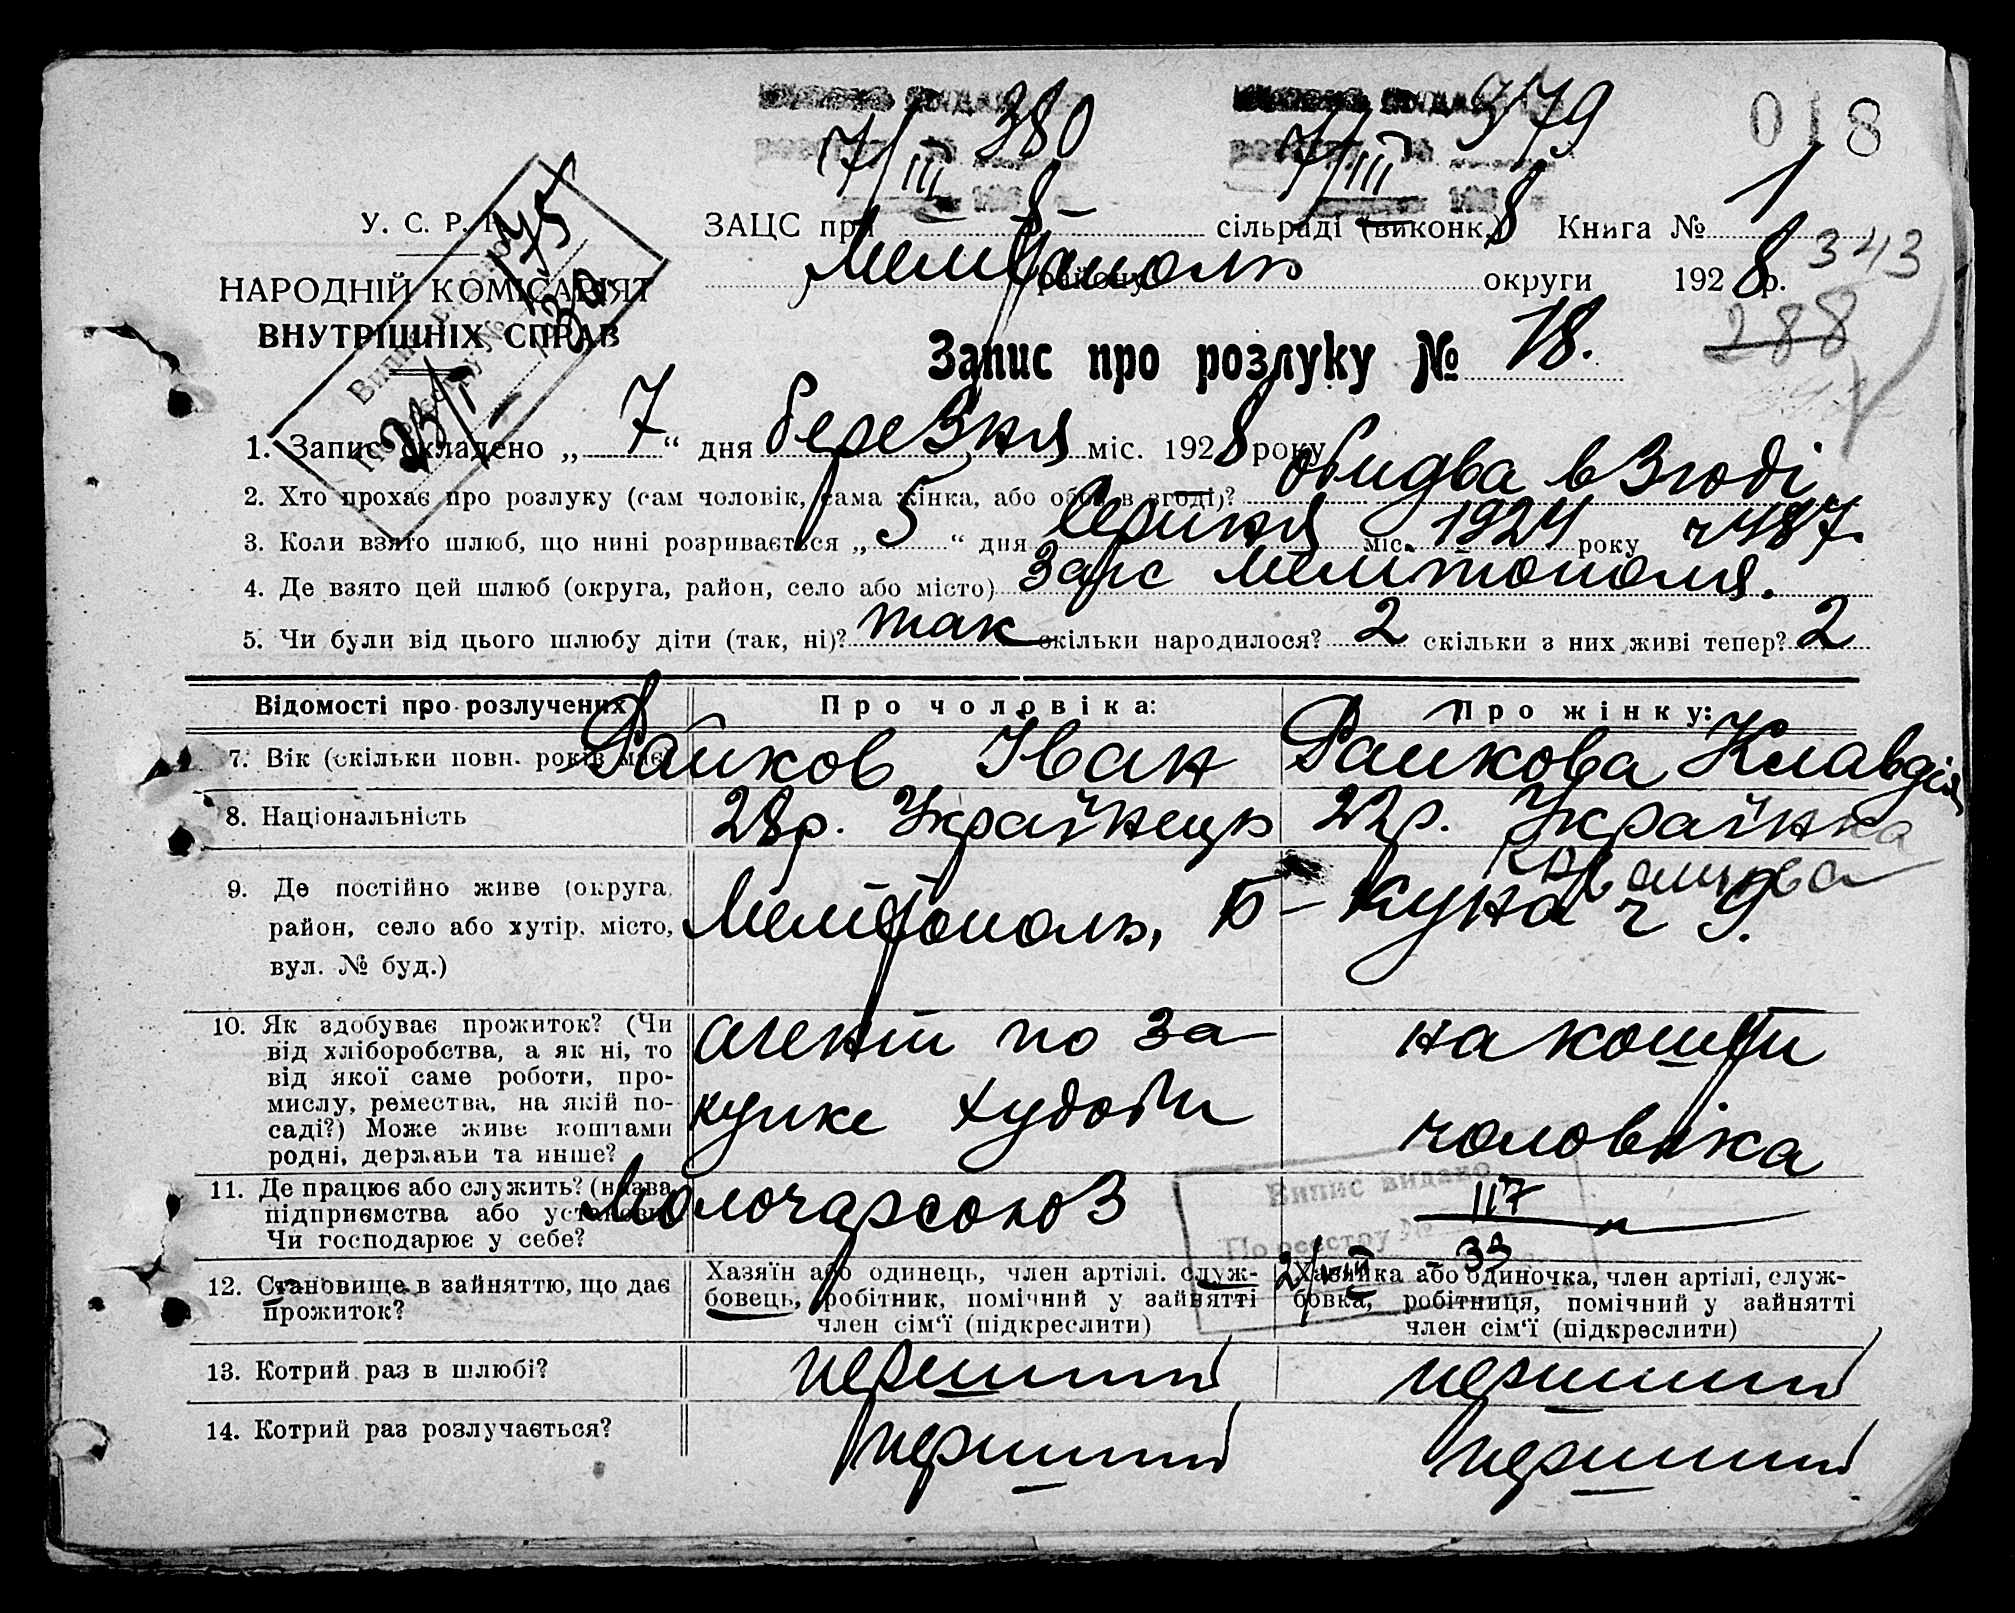 380 379 018
7/III 7/III
8 8 1
У. С. Р. Р. ЗАЦС при сільраді (виконк.) Книга №
НАРОДНІЙ КОМІСАРІЯТ Мелітополь району округи 1928 р. 343
ВНУТРІШНІХ СПРАВ 288
Випис видано
По реєстру № 175
23/I 30
Запис про розлуку № 18.
1. Запис складено „7“ дня березня міс. 1928 року
2. Хто прохає про розлуку (сам чоловік, сама жінка, або обоє в згоді)? обидва в згоді
3. Коли взято шлюб, що нині розривається „5“ дня серпня міс. 1924 року ч 487
4. Де взято цей шлюб (округа, район, село або місто) Загс Мелітополя.
5. Чи були від цього шлюбу діти (так, ні)? так скільки народилося? 2 скільки з них живі тепер? 2
Відомості про розлучених Про чоловіка: Про жінку:
7. Вік (скільки повн. років має) Раиков Іван Раикова Клавдія
8. Національність 28р. Українець 22р. Українка
9. Де постійно живе (округа, район, село або хутір, місто, вул. № буд.) Мелітополь, Б-Куна ч 9.
10. Як здобуває прожиток? (Чи
від хліборобства, а як ні, то
від якої саме роботи, про-
мислу, ремества, на якій по-
саді?) Може живе коштами
родні, держави та инше?
агент по за
купке худоби
на кошти
чоловіка
11. Де працює або служить? (назва
підприємства або установи)
Чи господарює у себе?
Молочарсоюз
Випис видано
По реєстру № 117
2/VIII 33
12. Становище в зайняттю, що дає
прожиток?
Хазяїн або одинець, член артілі, служ-
бовець, робітник, помічний у зайнятті
член сім'ї (підкреслити)
Хазяйка або одиночка, член артілі, служ-
бовка, робітниця, помічний у зайнятті
член сім'ї (підкреслити)
13. Котрий раз в шлюбі? перший перший
14. Котрий раз розлучається? перший перший